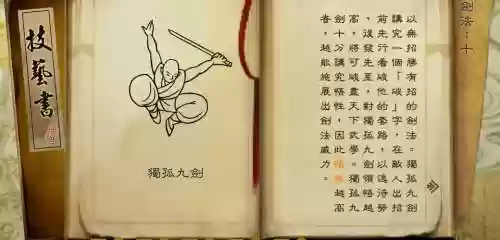 技藝書
獨孤九劍
劍法：十
以無招勝有招的劍法。獨孤九劍
講究一個「破」字，在敵人出招
前先行看破他的套路，以逸待勞
，後發先至，對獨孤九劍領悟越
高，將可破盡天下武學。獨孤
劍十分講究悟性，因此悟性越高
者，越能施展出劍法威力。